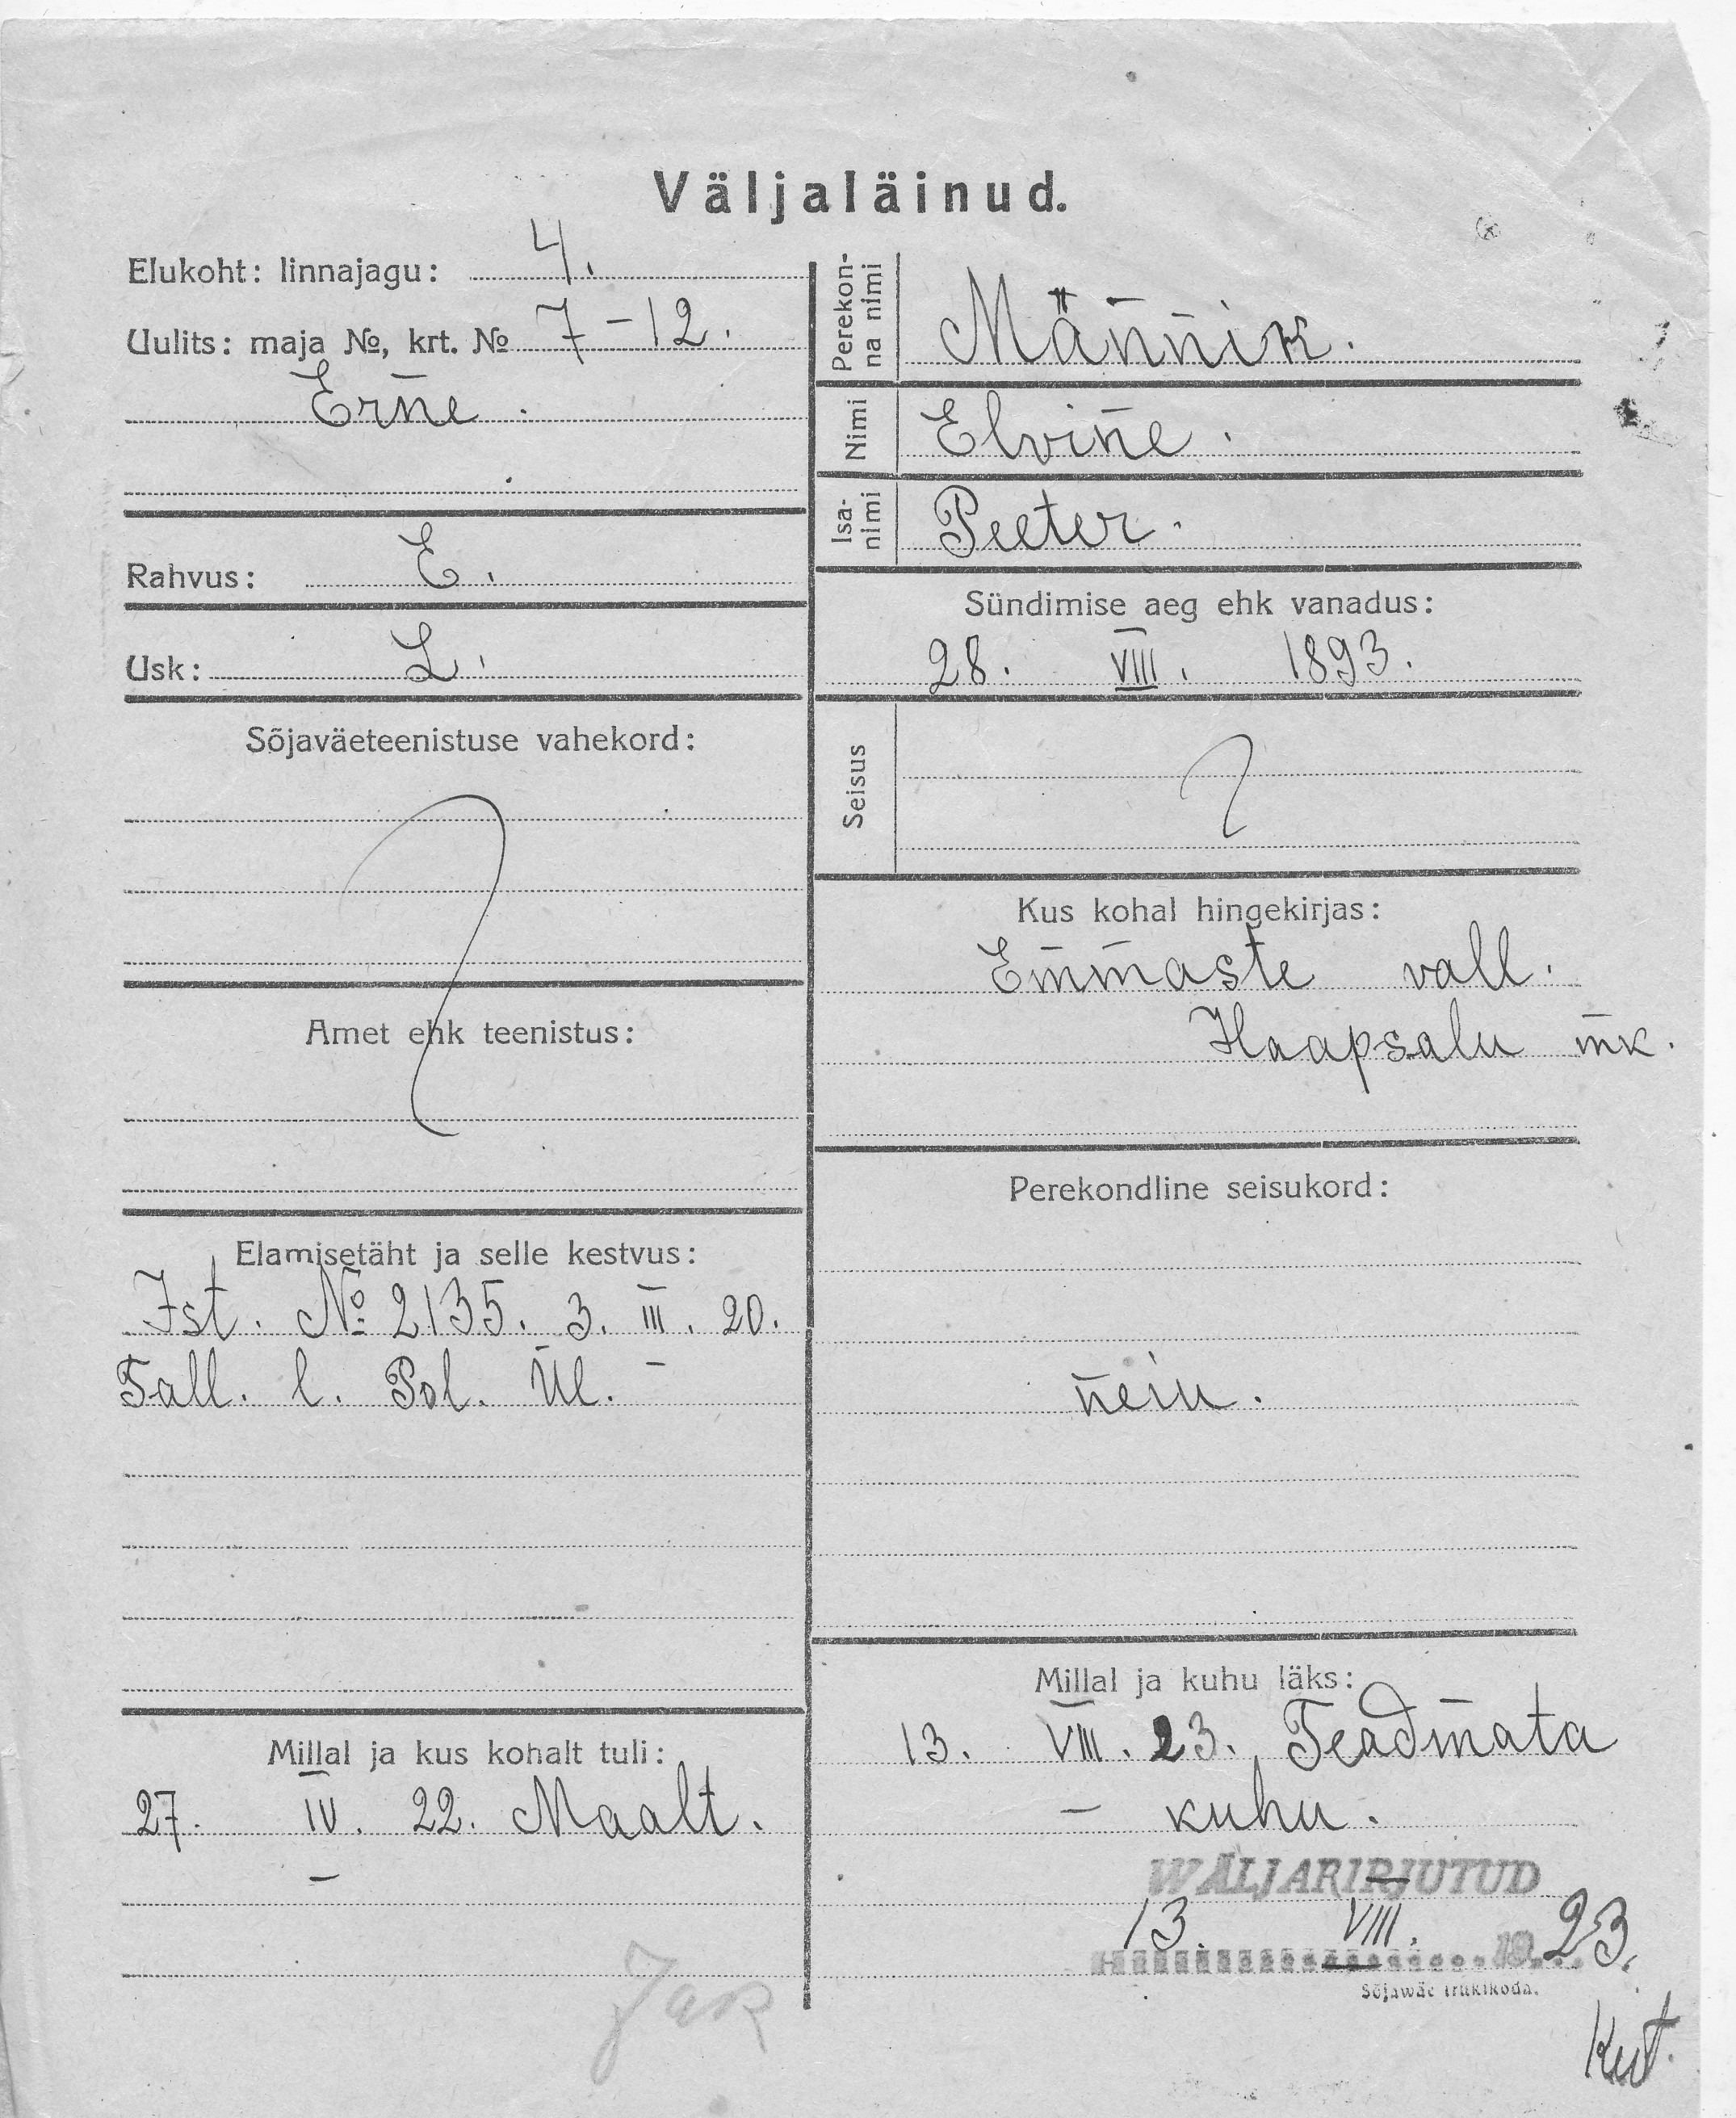 Väljaläinud.
Elukoht: linnajagu: 4.
Uulits: maja №, krt. № 7-12.
Erne.
Rahvus: E.
Usk: L.
Sõjaväeteenistuse vahekord:
Amet ehk teenistus:
Elamisetäht ja selle kestvus:
Ist. № 2135. 3. III. 20.
Tall. l. Pol. Ül. -
Millal ja kus kohalt tuli:
27. IV. 22. Maalt.
-
Perekon-
na nimi
Männik.
Nimi
Elvine.
Isa-
nimi
Peeter.
Sündimise aeg ehk vanadus:
28. VIII. 1893.
Seisus
Kus kohal hingekirjas:
Emmaste vall.
Haapsalu mk.
Perekondline seisukord:
neiu.
Millal ja kuhu läks:
13. VIII. 23. Teadmata
- kuhu.
WÄLJAKIRJUTUD
13. VIII. 19.23.
Sõjawäe trükikoda.